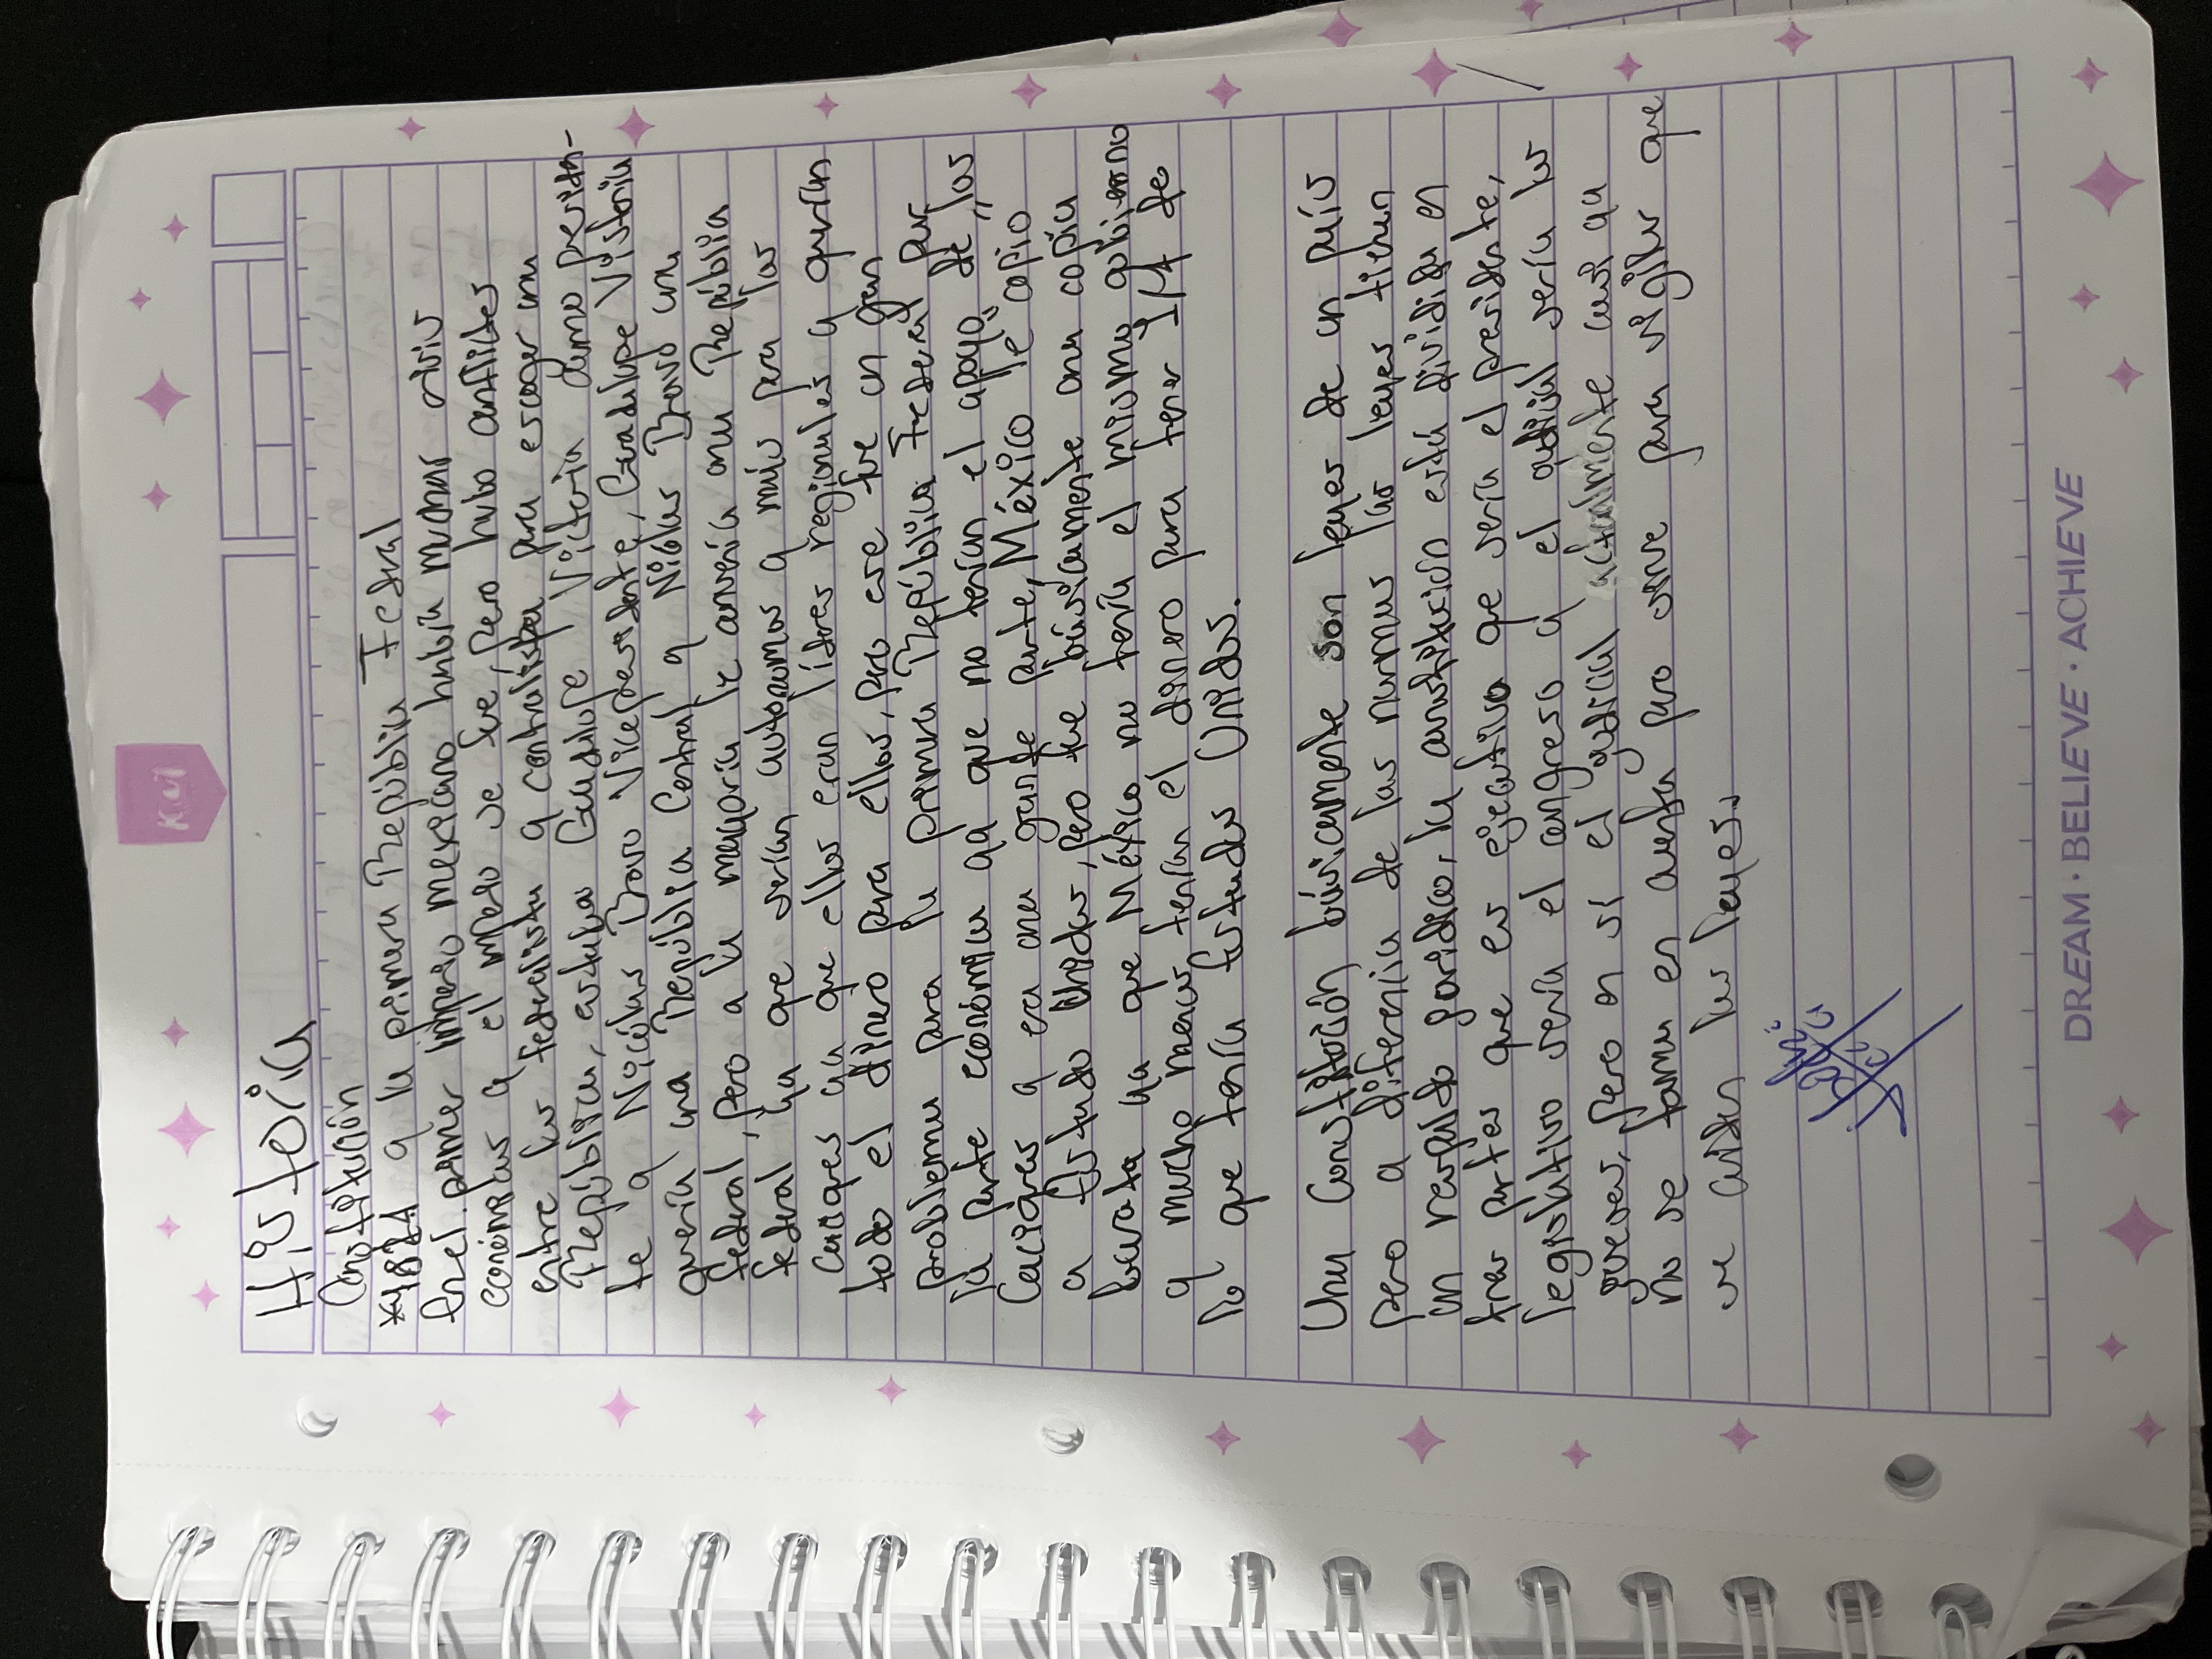 Kiut
Historia
Constitución
*1824 y la primera República Fedral
En el primer imperio mexicano había muchas crisis
económicas y el impedo se fue, pero hubo conflictos
entre los federalista y centralistas para escoger una
República, estaba Guadalupe Victoria como presiden-
te y Nicólas Bravo Vicepresidente, Guadalupe Victoria
quería una República Central y Nicólas Bravo una
fedral, pero a la mayoría le convenía una República
fedral ya que serían autonomos y más para los
Caciques ya que ellos eran líderes regionales y querían
todo el dinero para ellos, pero ese fue un gran
problema para la primera República Federal por
la parte económica ya que no tenían el apoyo de los
Caciques y era una gran parte, México "se copio"
a Estado Unidos, pero fue básicamente una copia
barata ya que México no tenía el mismo gobierno
y mucho menos tenían el dinero para tener 1/4 de
lo que tenía Estados Unidos.
Una Constitución básicamente son leyes de un país
pero a diferencia de las normas las leyes tienen
un respaldo jurídico, la constitución está dividida en
tres partes que es ejecutivo que sería el presidente,
legislativo sería el congreso y el judicial sería los
jueces, pero en sí el judicial actualmente casi ya
no se toma en cuenta pero sirve para vigilar que
se cuiden las leyes.
DREAM · BELIEVE · ACHIEVE